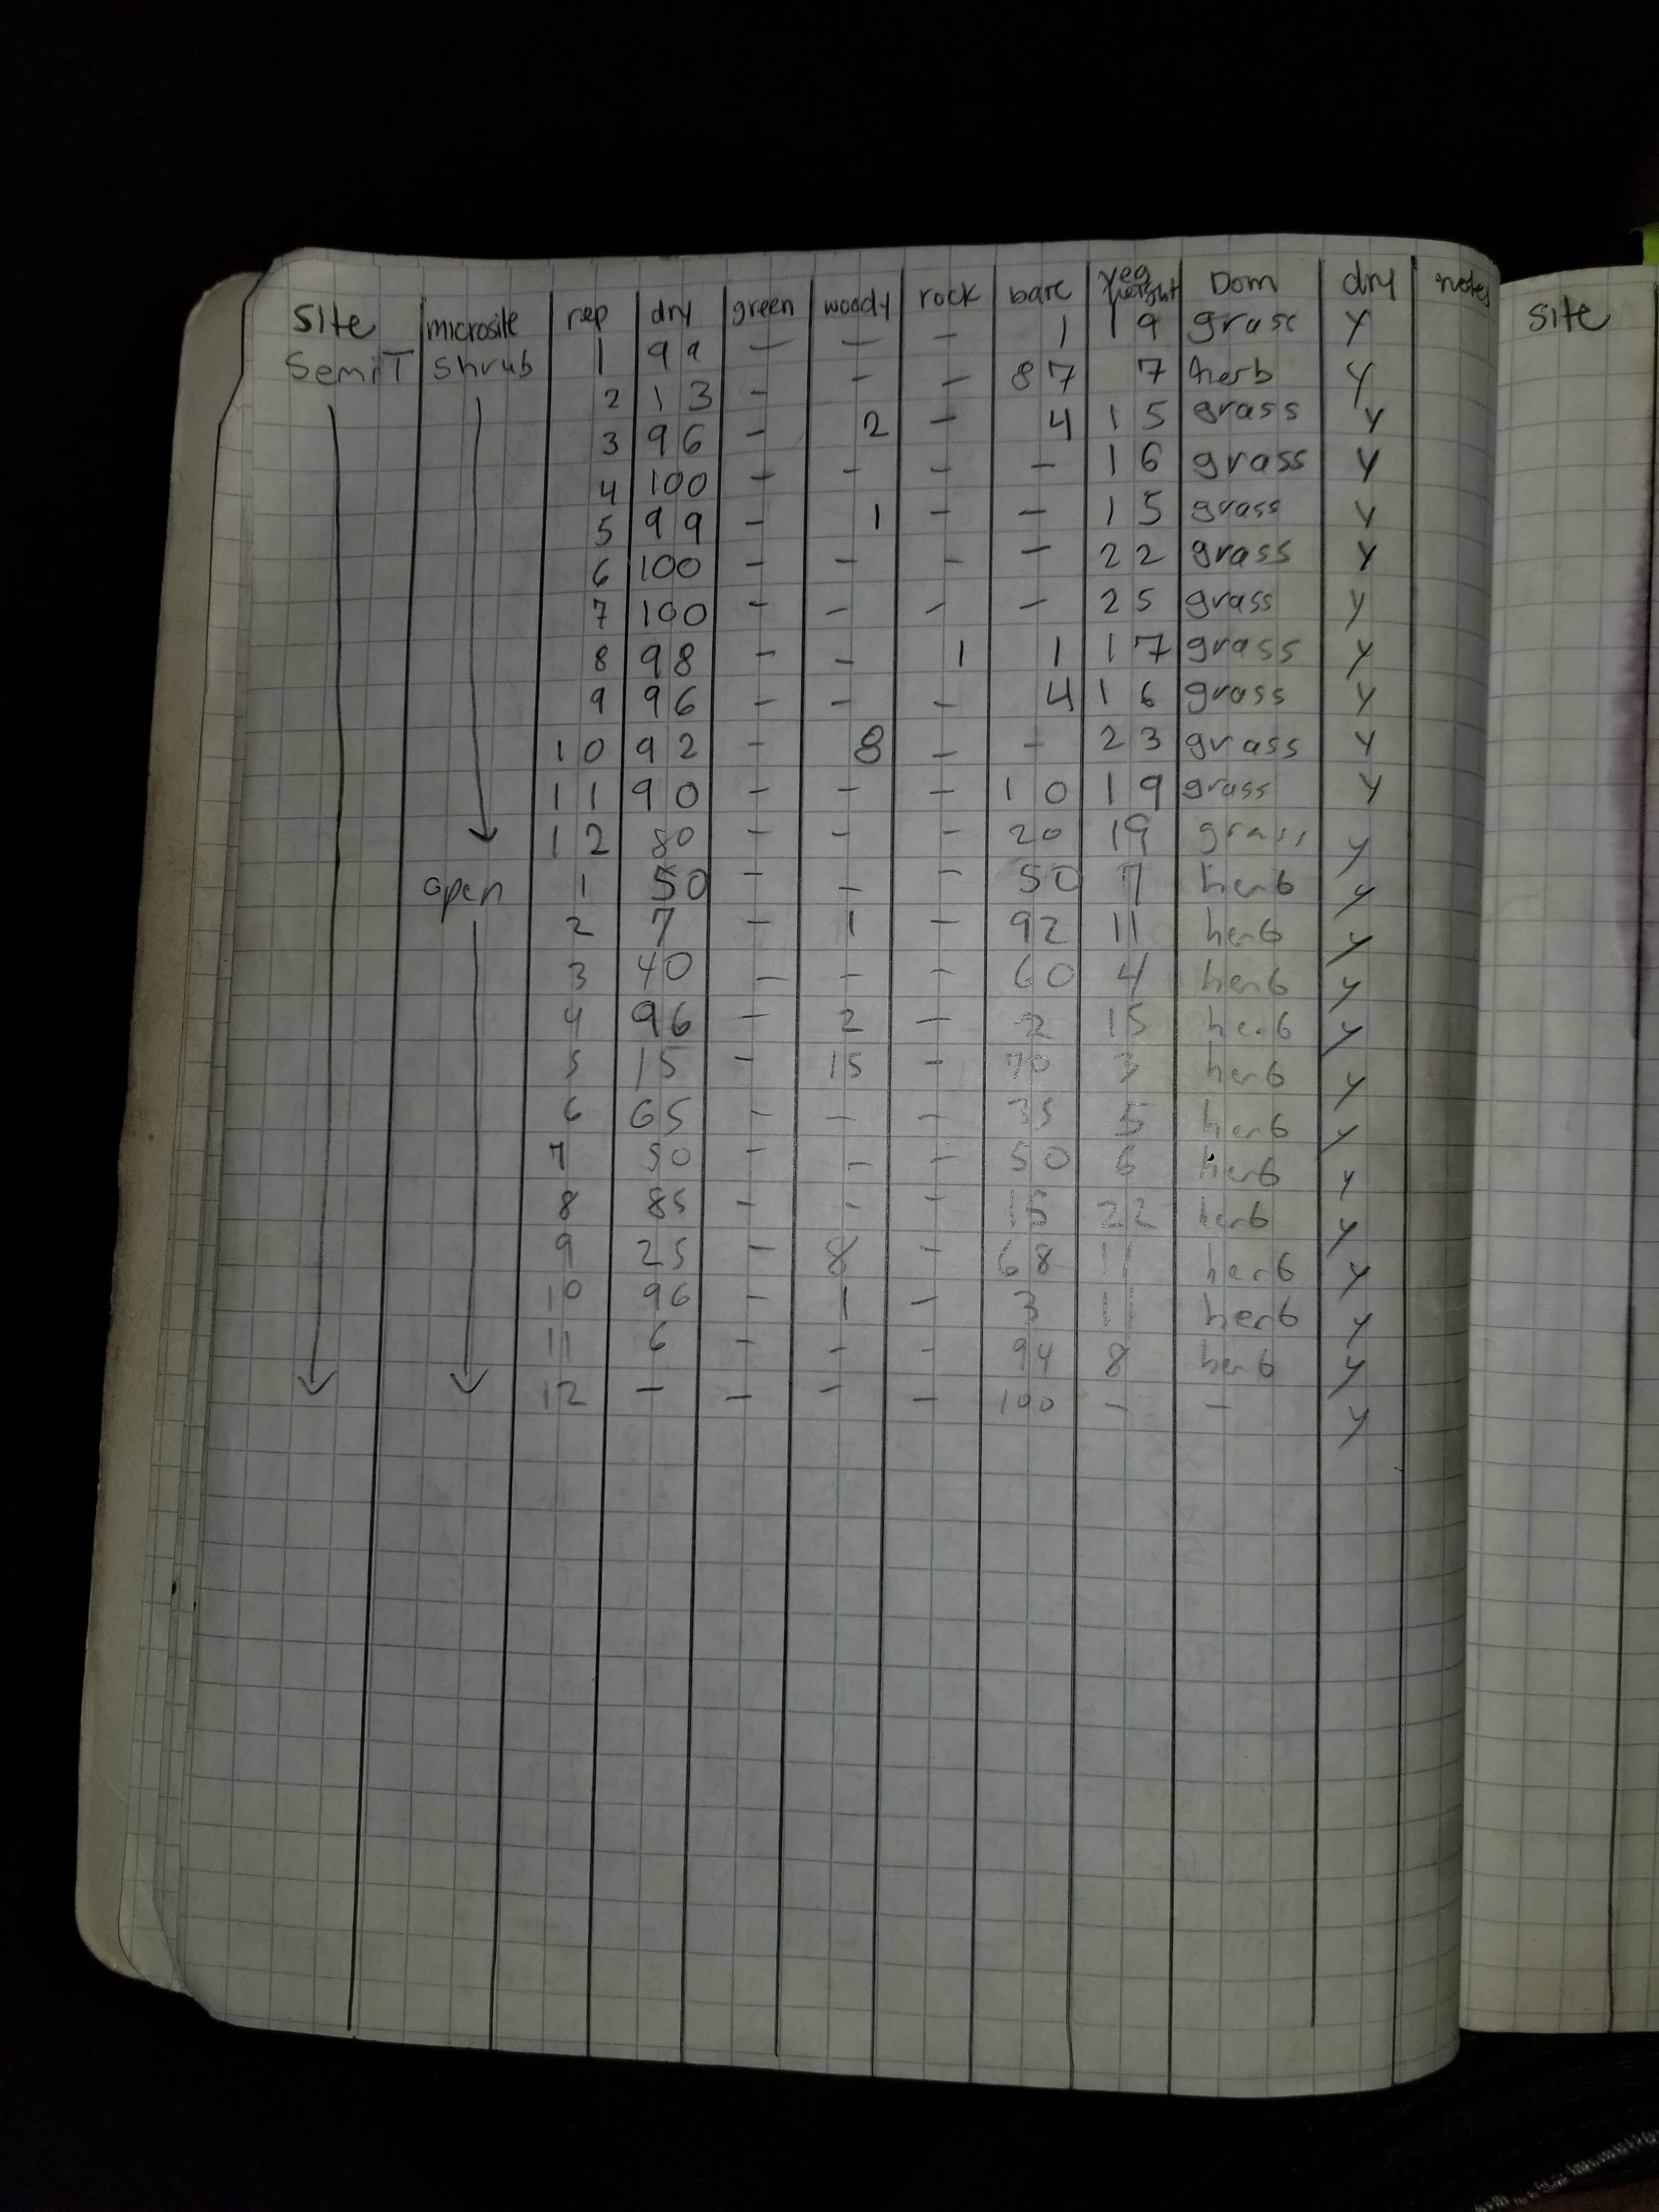 site microsite rep dry green woody rock bare veg height Dom dry notes
SemiT shrub 1 99 — — — 1 19 grass Y
2 13 — — — 87 7 herb Y
3 96 — 2 — 4 15 grass Y
4 100 — — — — 16 grass Y
5 99 — 1 — — 15 grass Y
6 100 — — — — 22 grass Y
7 100 — — — — 25 grass Y
8 98 — — 1 1 17 grass Y
9 96 — — — 4 16 grass Y
10 92 — 8 — — 23 grass Y
11 90 — — — 10 19 grass Y
12 80 — — — 20 19 grass Y
open 1 50 — — — 50 7 herb Y
2 7 — 1 — 92 11 herb Y
3 40 — — — 60 4 herb Y
4 96 — 2 — 2 15 herb Y
5 15 — 15 — 70 3 herb Y
6 65 — — — 35 5 herb Y
7 50 — — — 50 6 herb Y
8 85 — — — 15 22 herb Y
9 25 — 8 — 68 11 herb Y
10 96 — 1 — 3 11 herb Y
11 6 — — — 94 8 herb Y
12 — — — — 100 — — Y
site